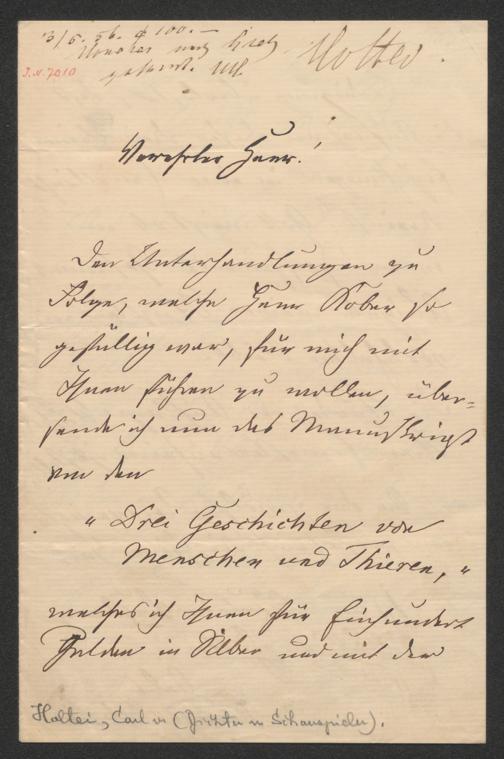 3/5. 56. f 100.—
Holtei.
J.N. 7010
noch
Verehrter Herr!
Den Unterhandlungen zu
Folge, welche Herr Kober so
gefällig war, für mich mit
Ihnen führen zu wollen, über-
sende ich nun das Manuskript
von den
„ Drei Geschichten von
Menschen und Thieren, "
welches ich Ihnen für Einhundert
Gulden in Silber und mit der
Holtei, Carl v. (Dichter u Schauspieler).